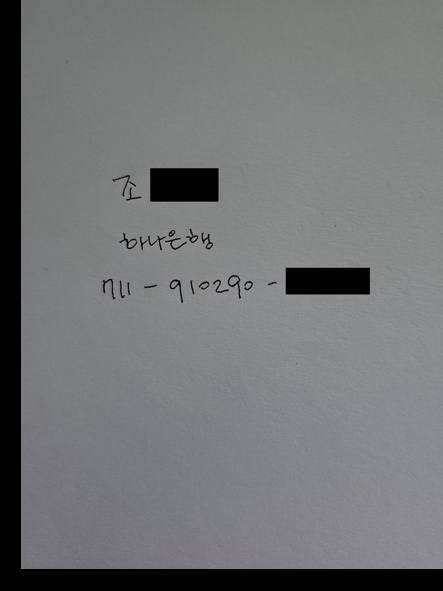 조
하나은행
711 - 910290 -